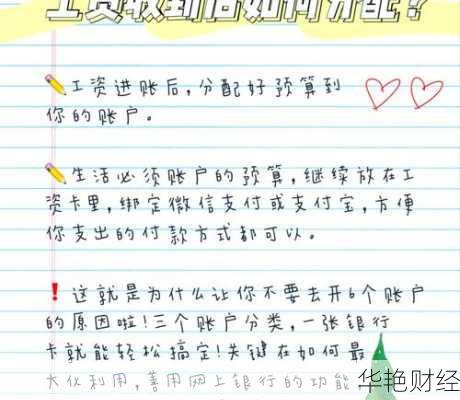 工资收到后如何分配?
工资进账后,分配好预算到
你的账户。
生活必须账户的预算,继续放在工
资卡里,绑定微信支付或支付宝,方便
你支出的付款方式都可以。
这就是为什么让你不要去开6个账户
的原因啦!三个账户分类,一张银行
卡就能轻松搞定!关键在如何最
大化利用,善用网上银行的功能
华艳财经